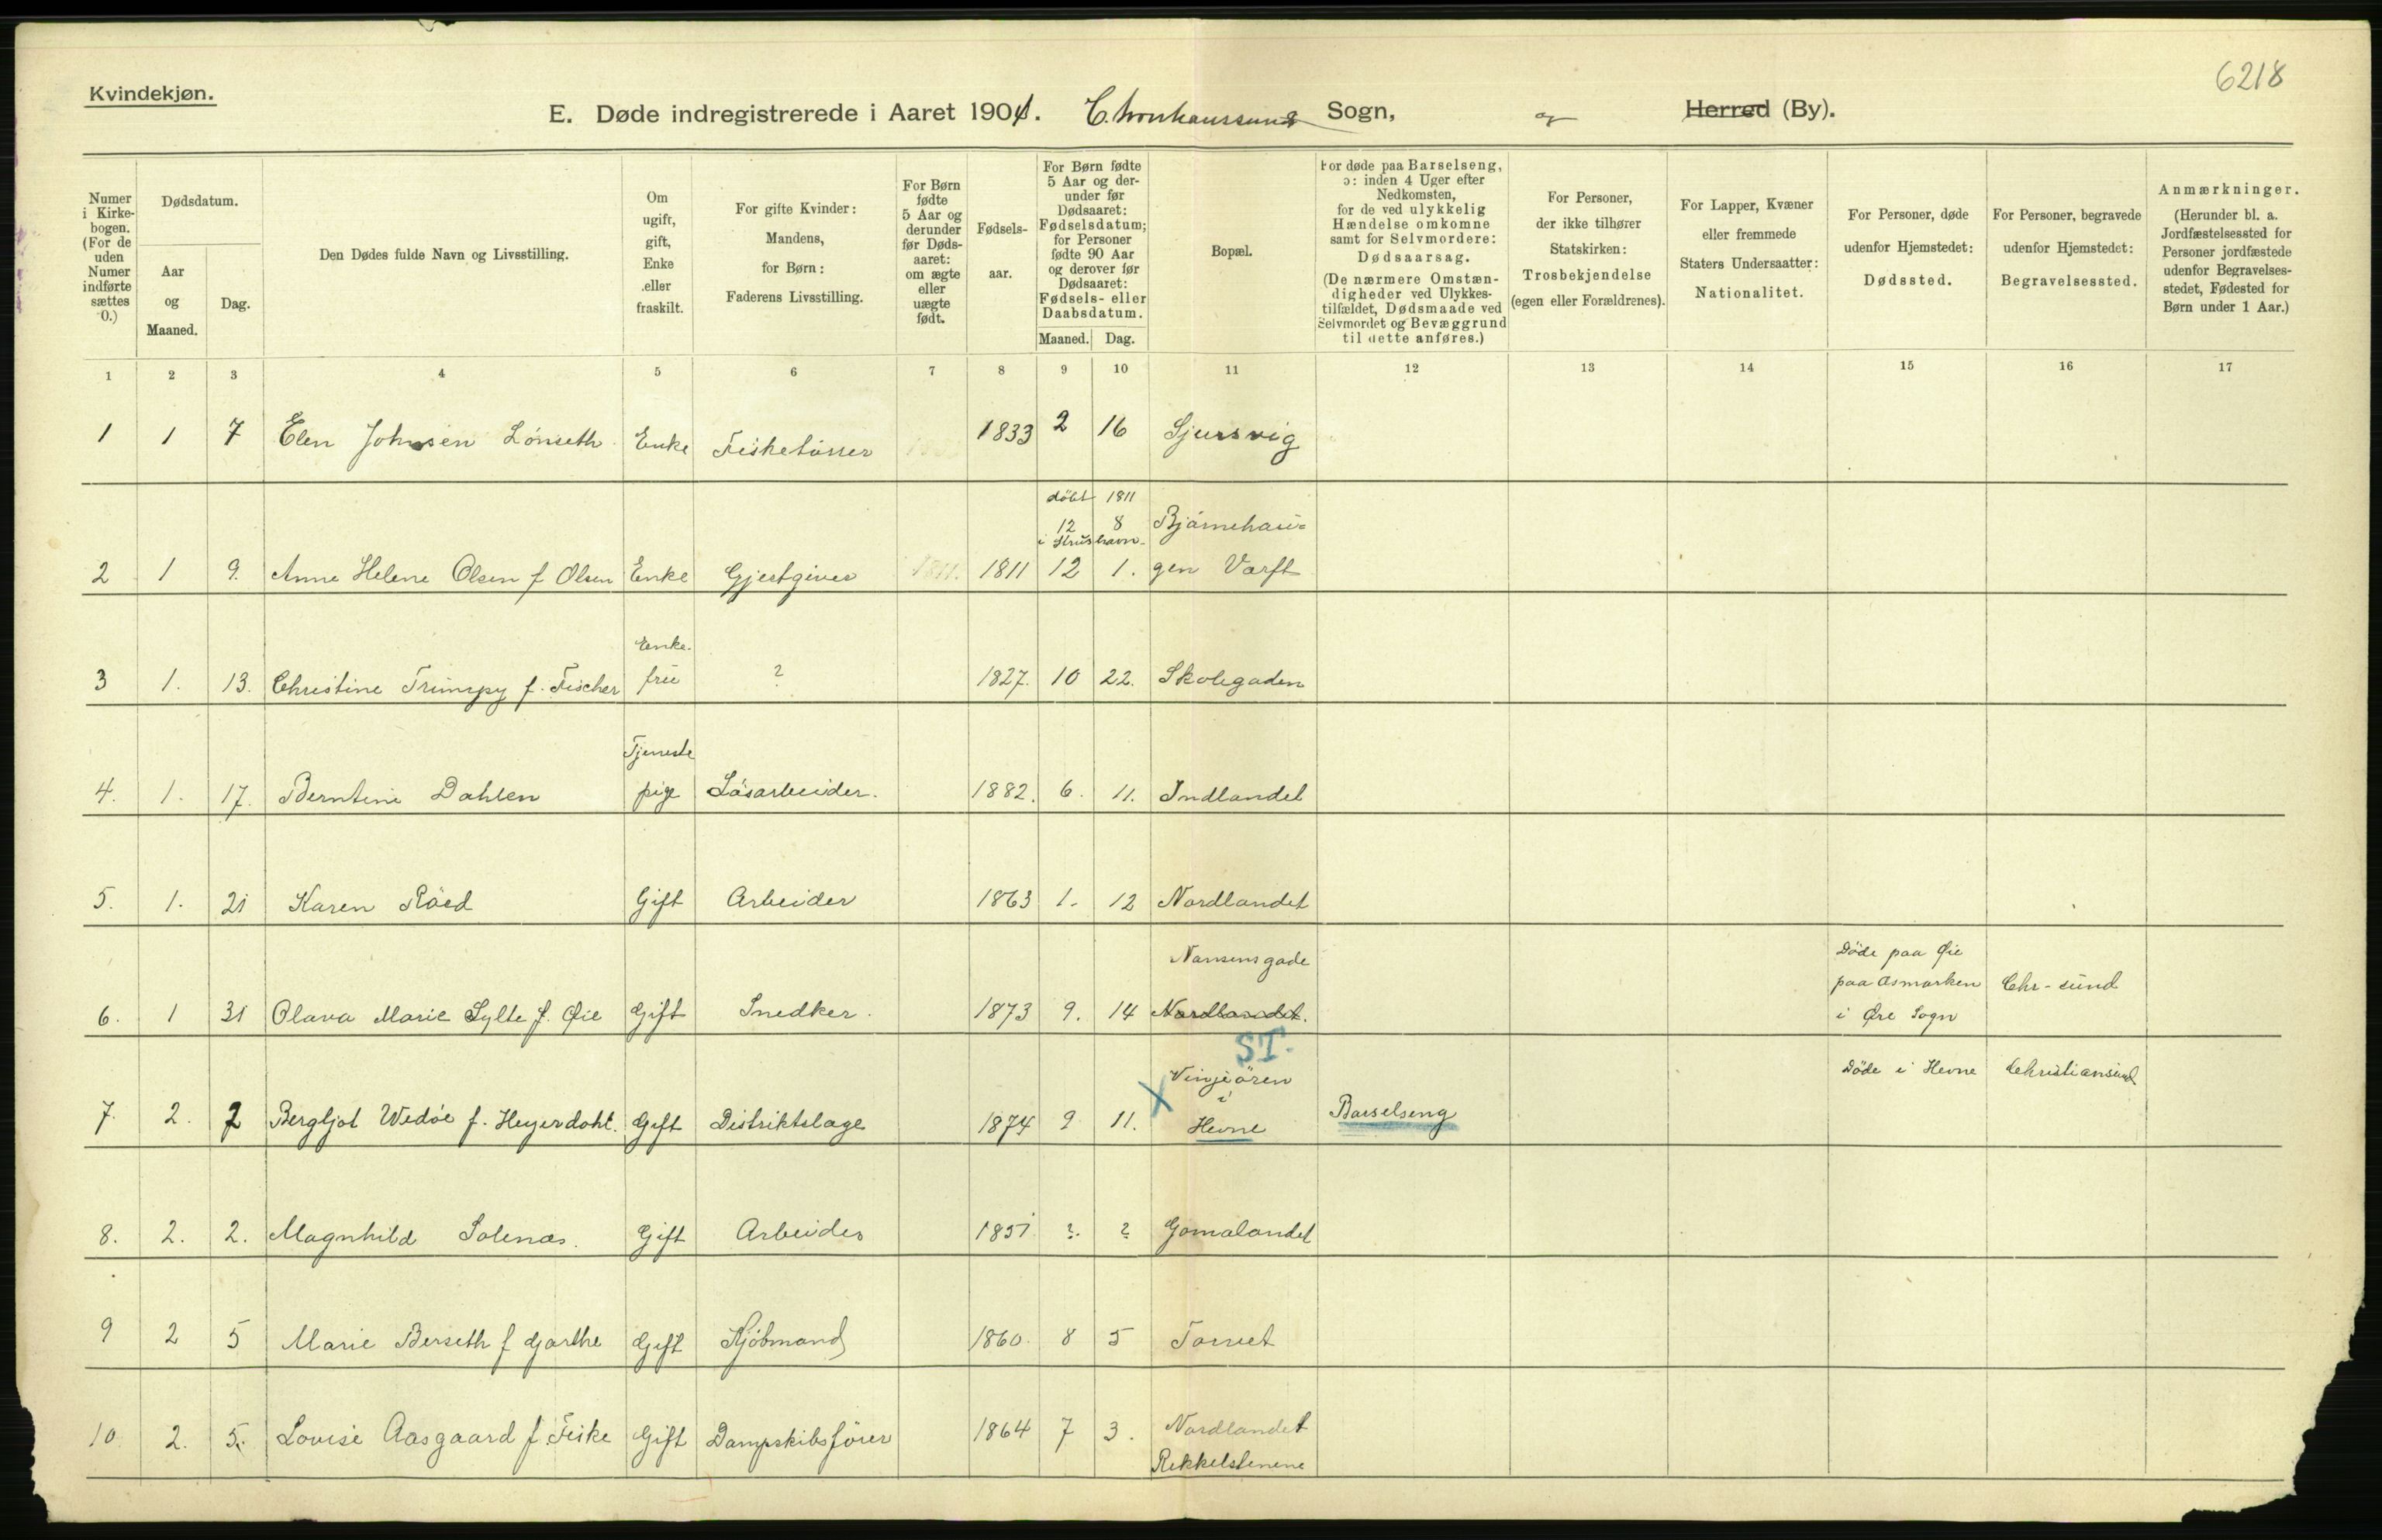 6218
Kvindekjøn.
E. Døde indregistrerede i Aaret 1904. Sogn, og Herred (By).
Numer i Kirkebogen. (For de uden Numer indførte sættes 0.)
Dødsdatum.
Aar og Maaned.
Dag.
Den Dødes fulde Navn og Livsstilling.
Om ugift, gift, Enke eller fraskilt.
For gifte Kvinder: Mandens, for Børn: Faderens Livsstilling.
For Børn fødte 5 Aar og derunder før Dødsaaret: om ægte eller uægte født.
Fødselsaar.
For Børn fødte 5 Aar og derunder før Dødsaaret: Fødselsdatum; for Personer fødte 90 Aar og derover før Dødsaaret: Fødsels- eller Daabsdatum.
Maaned. Dag.
Bopæl.
For døde paa Barselseng, ɔ: inden 4 Uger efter Nedkomsten, for de ved ulykkelig Hændelse omkomne samt for Selvmordere: Dødsaarsag.
(De nærmere Omstændigheder ved Ulykkestilfældet, Dødsmaade ved Selvmordet og Bevæggrund til dette anføres.)
For Personer, der ikke tilhører Statskirken: Trosbekjendelse (egen eller Forældrenes).
For Lapper, Kvæner eller fremmede Staters Undersaatter: Nationalitet.
For Personer, døde udenfor Hjemstedet: Dødssted.
For Personer, begravede udenfor Hjemstedet: Begravelsessted.
Anmærkninger.
(Herunder bl. a. Jordfæstelsessted for Personer jordfæstede udenfor Begravelsesstedet, Fødested for Børn under 1 Aar.)
1 2 3 4 5 6 7 8 9 10 11 12 13 14 15 16 17
1 1 7 Elen Johnsen Lönseth Enke 1833 2 16 Sjursvig
döbt 1811
12 8 Bjørnehau=
2 1 9. Anne Helene Olsen f. Olsen Enke Gjestgiver 1811. 1811 12 1. gen Varft
Enke.
3 1. 13. Christine Trümpy f. Fischer frü ? 1827. 10 22. Skolegaden
Tjeneste
4. 1. 17. Berntine Dahlen pige Lösarbeider. 1882. 6. 11. Indlandet
5. 1. 21 Karen Röed Gift Arbeider 1863 1. 12 Nordlandet
Nansensgade Döde paa Øie
paa Asmarken Chr-sund
6. 1 31 Olava Marie Sylte f. Øie Gift Snedker. 1873 9. 14 Nordlandet. i Øre Sogn
ST.
X Vinjeören Döde i Hevne Christiansund
i
7. 2. 2 Bergljot Wedöe f. Heyerdahl. Gift Distriktslæge 1874 9 11. Hevne Barselseng
8. 2. 2. Magnhild Solenæs. Gift Arbeider 1851 ?. ? Gomalandet
9 2 5 Marie Berseth f Gjørthe Gift Kjöbmand 1860. 8 5 Torvet
10 2. 5. Lovise Aasgaard f. Fiske Gift Dampskibsfører 1864 7 3. Nordlandet
Rekkelstenene